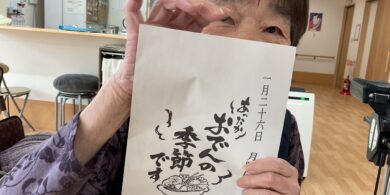 一月二十六日 月
あったか
おでんの
季節
です